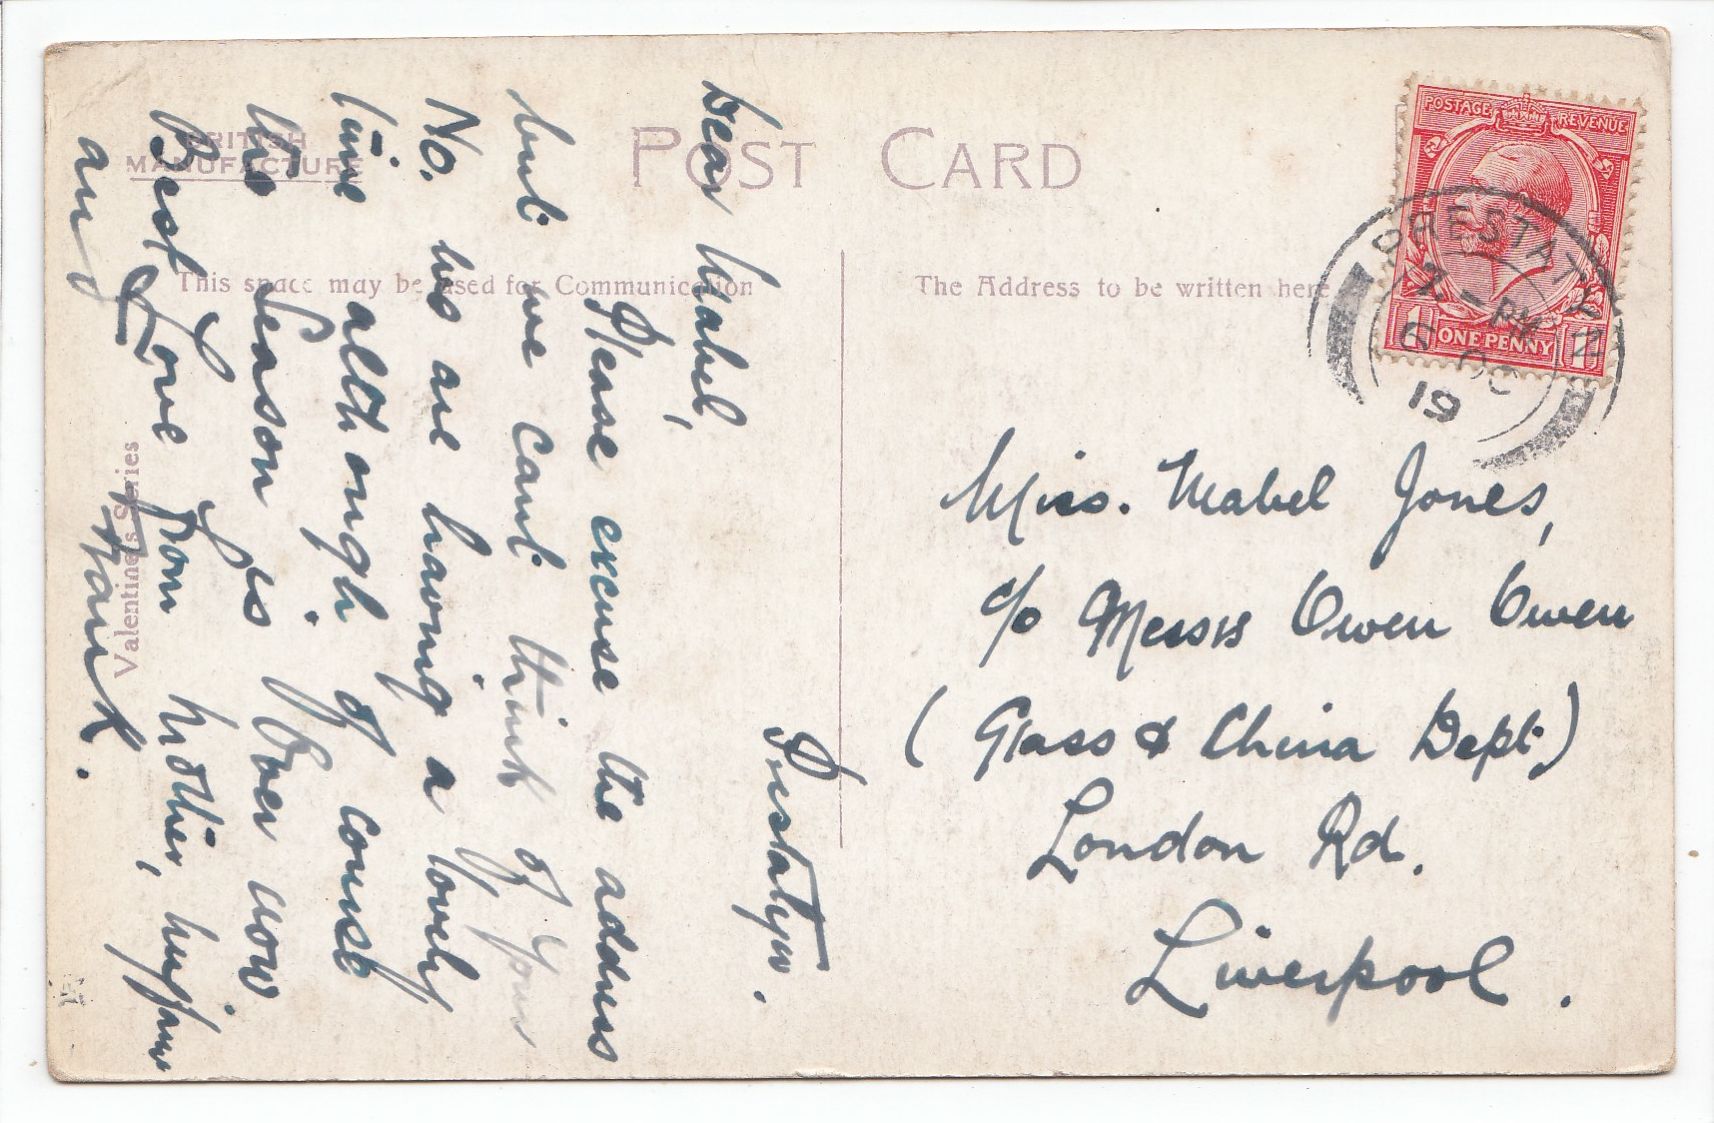 POST CARD
BRITISH
MANUFACTURE
This space may be used for Communication
The Address to be written here
Valentine's Series
POSTAGE REVENUE
1 ONE PENNY 1
PRESTATYN
7 - PM
6 OC
19
Prestatyn.
Dear Mabel,
Please excuse the address
but we cant think of your
No. We are having a lovely
time although of course
the Season is over now
Best Love from Mother,
and Frank.
Miss. Mabel Jones,
c/o Messrs Owen Owen
(Glass & China Dept.)
London Rd.
Liverpool.